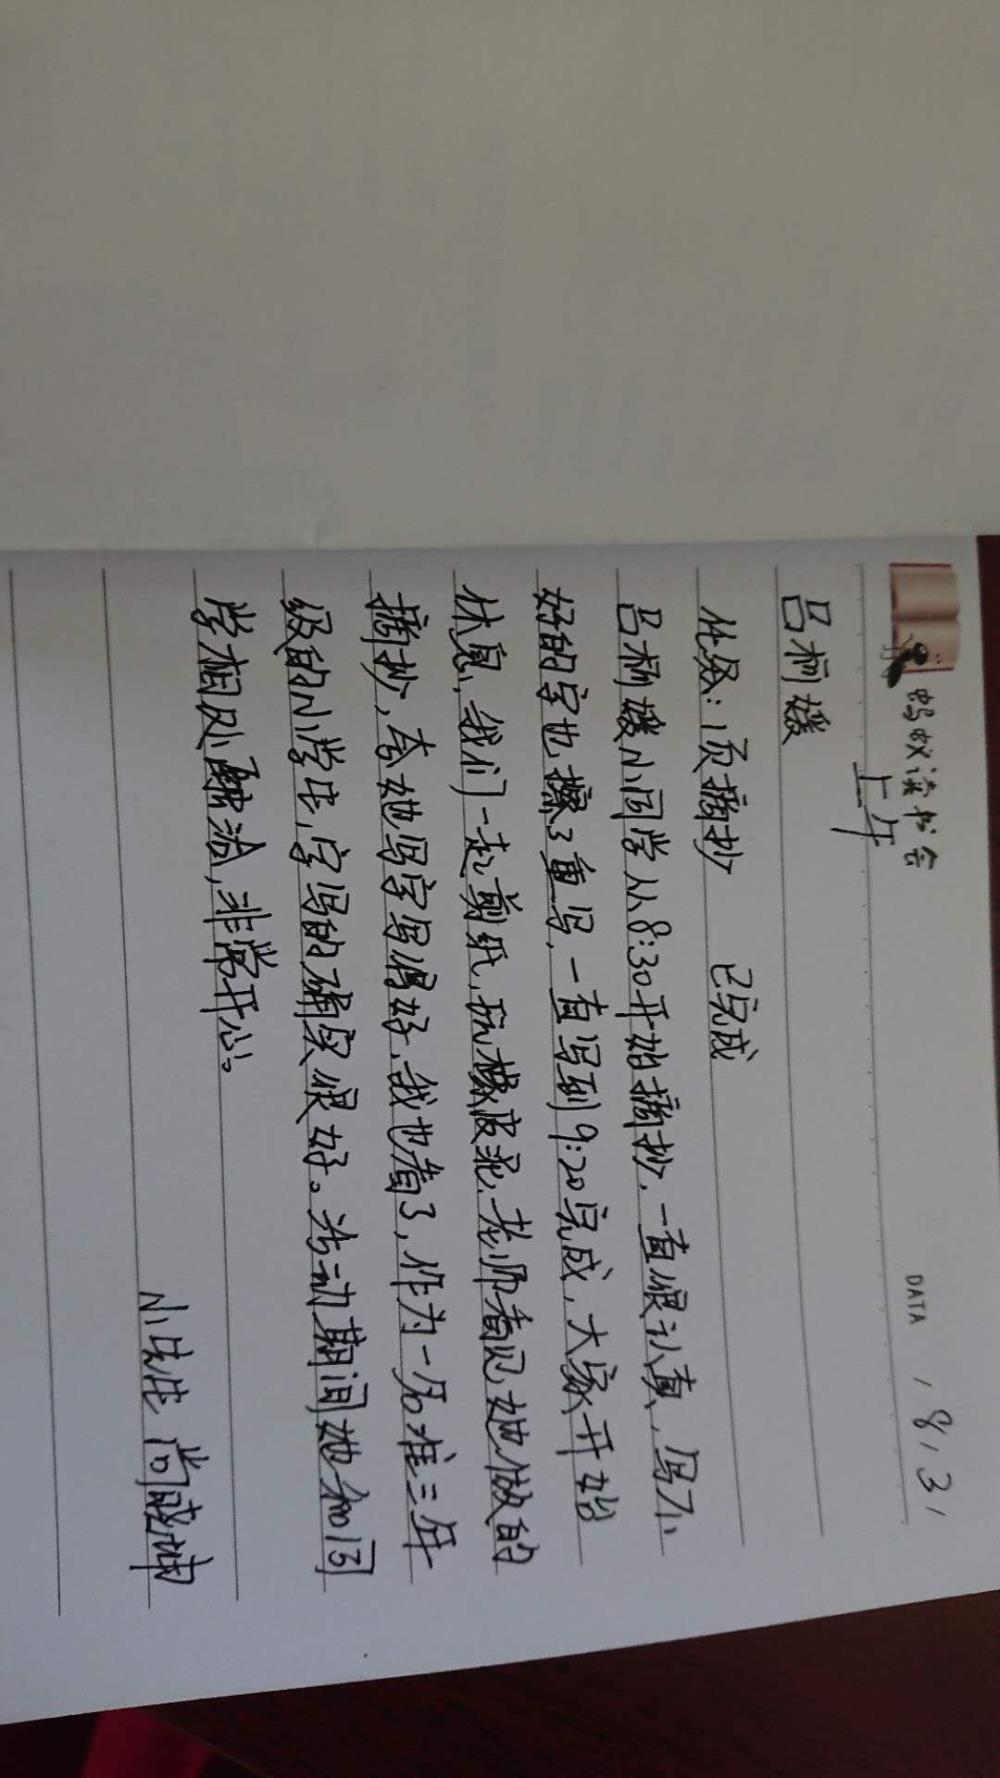 蚂蚁读书会
DATA , 8, 3,
上午
吕柯媛
任务:1页摘抄 已完成
吕柯媛小同学从8:30开始摘抄,一直很认真,写不
好的字也擦了重写,一直写到9:20完成,大家开始
休息,我们一起剪纸,玩橡皮泥,老师看见她做的
摘抄,夸她写字写得好,我也看了,作为一名准三年
级的小学生,字写的确实很好。活动期间她和同
学相处融洽,非常开心。
小先生 尚